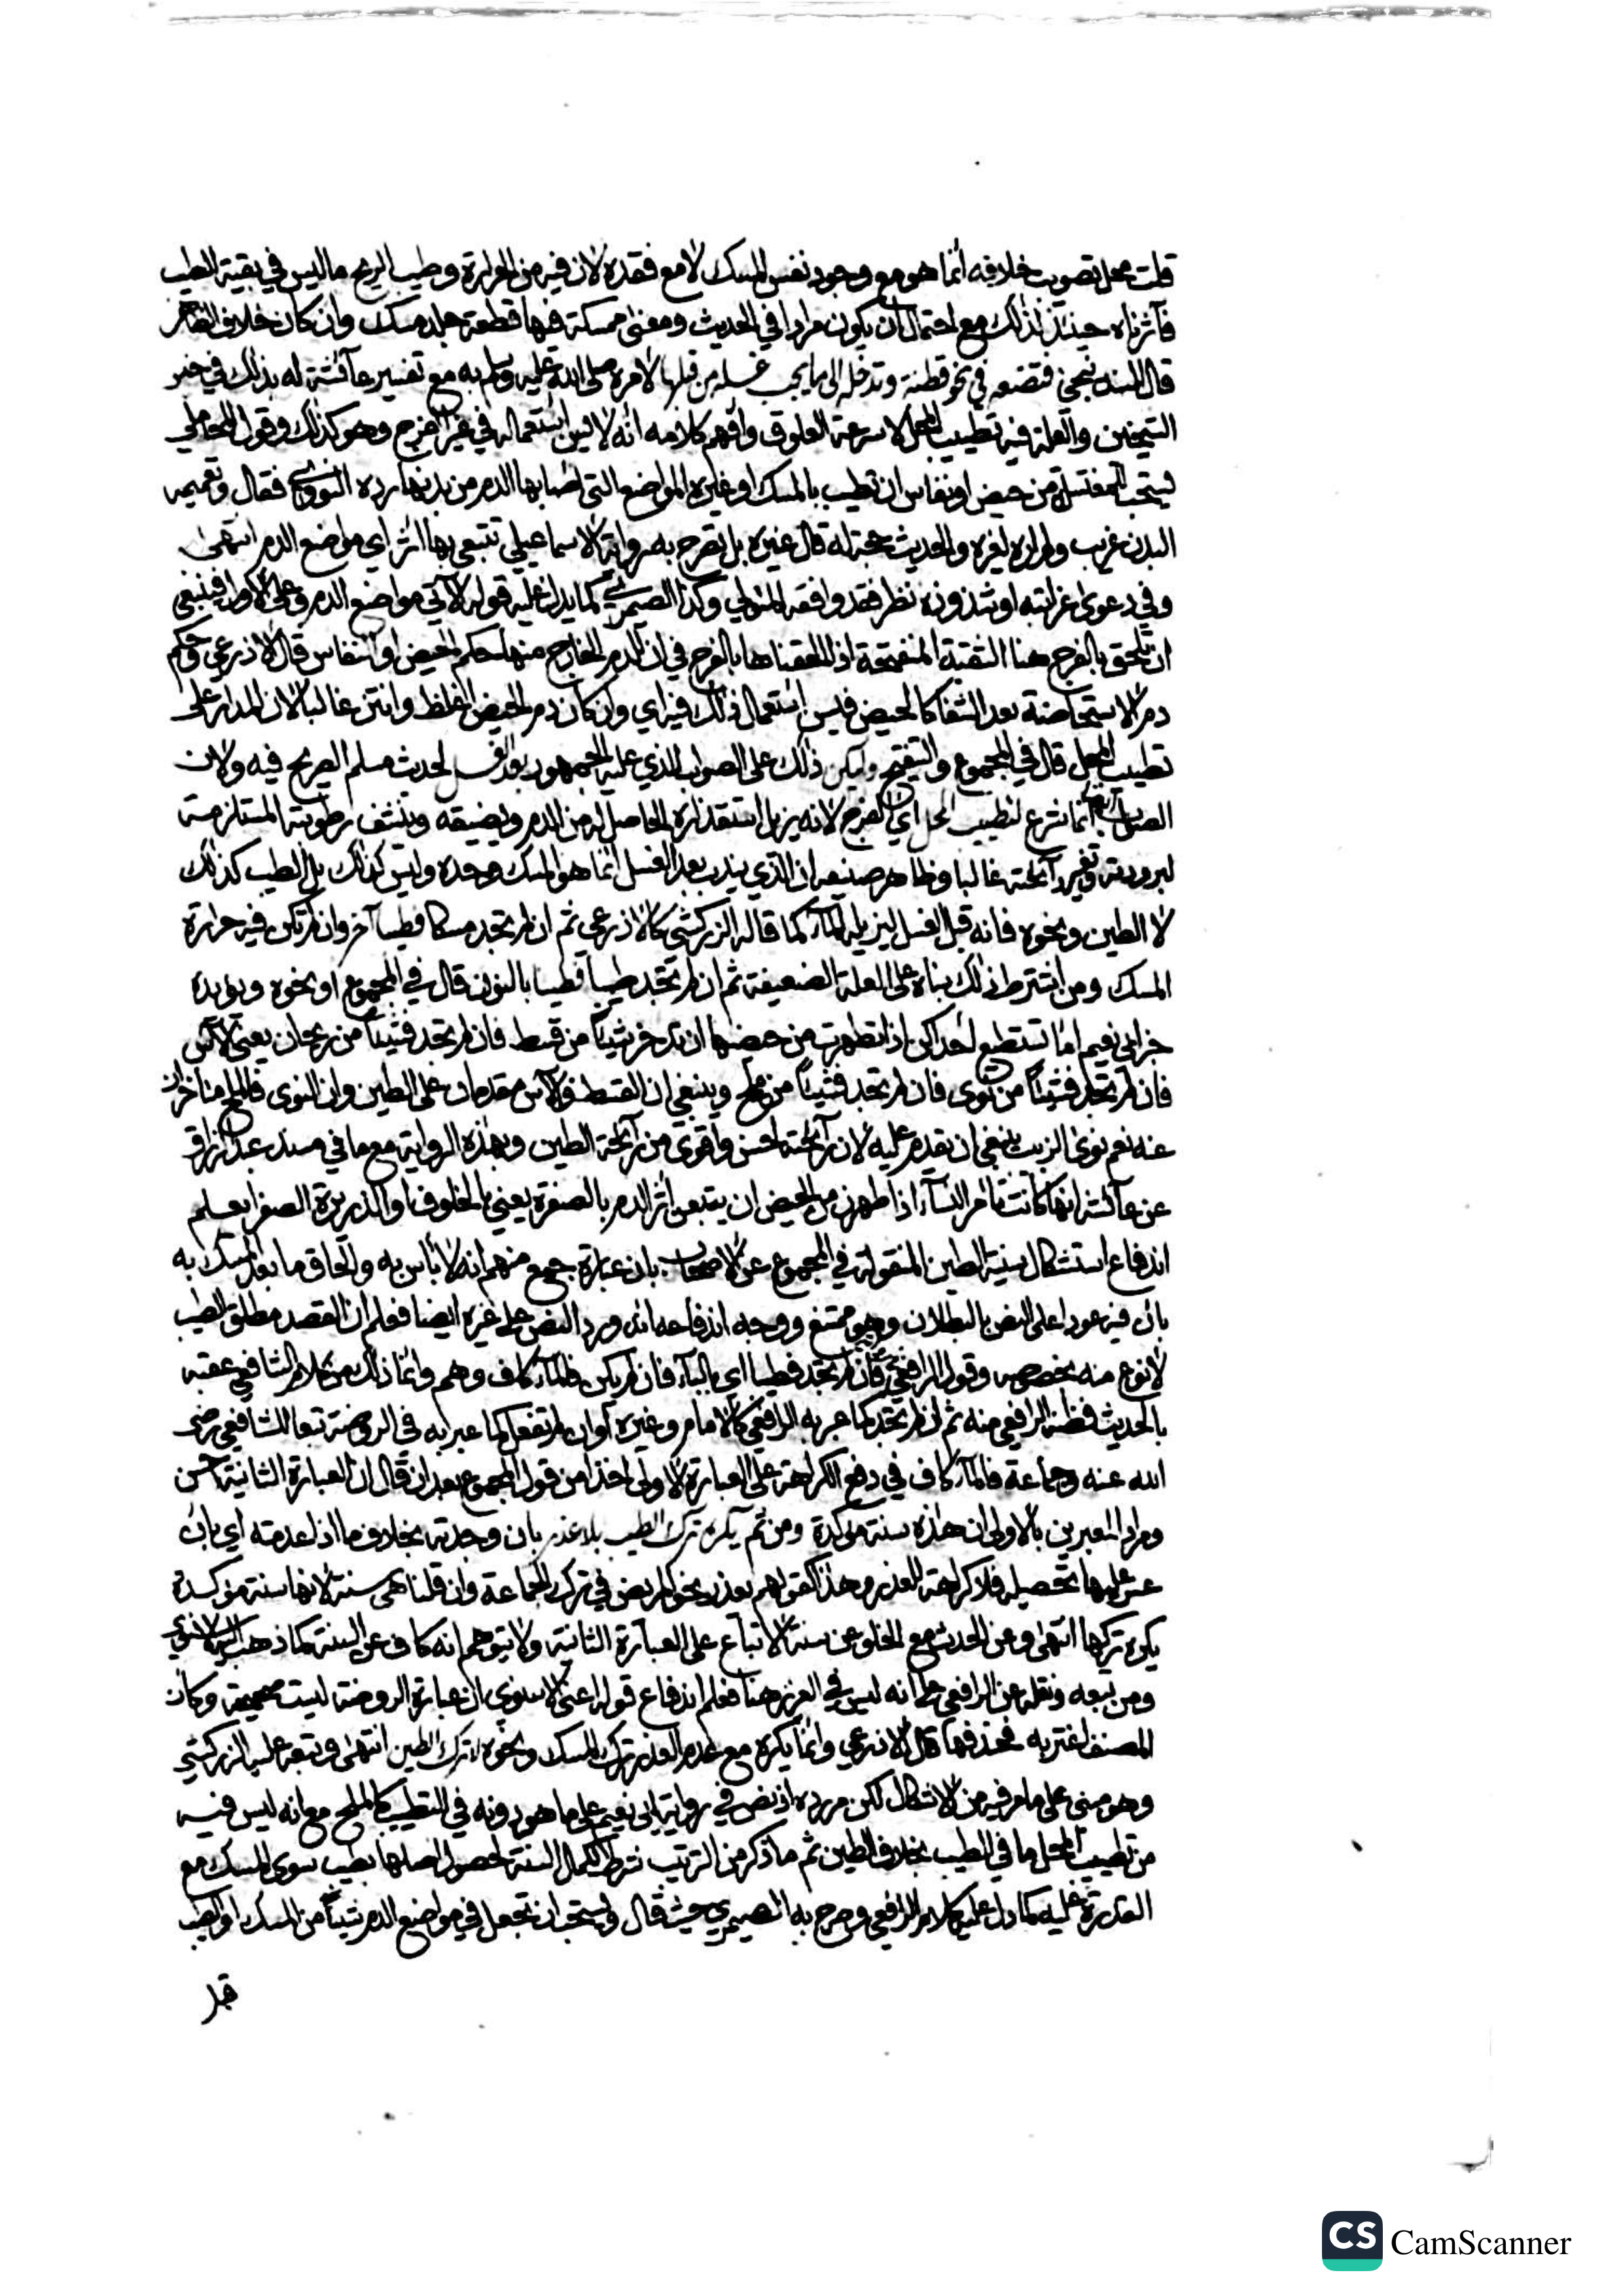 قلت محل تصويب خلافه انما هو مع وجود نفس المسك لا مع فقده لان فيه من الحرارة وطيب الريح ما ليس في بقية الطيب
فآثرناه حينئذ لذلك مع احتمال ان يكون مرادا في الحديث ومعنى ممسكة فيها قطعة جلد مسك وان كان خلاف الظاهر
قال البندنيجي فتضعه في نحو قطنة وتدخله الى ما يجب غسله من قبلها لامره صلى الله عليه وسلم به مع تفسير عائشة له بذلك في خبر
الشيخين والعلة فيه تطييب المحل لا سرعة العلوق وافهم كلامه انه لا يسن استعماله في غير الفرج وهو كذلك وقول المحاملي
يستحب للمغتسلة من حيض او نفاس ان تطيب بالمسك او غيره المواضع التي اصابها الدم من بدنها رده النووي فقال وتعميمه
البدن غريب ولم اره لغيره والحديث حجة له قال غيره بل تصرح به رواية الاسماعيلي تتبعي بها اثر اي مواضع الدم انتهى
وفي دعوى غرابته او شذوذه نظر فقد وافقه المتولي وكذا الصيمري كما يدل عليه قوله الآتي مواضع الدم وعلى الاول فينبغي
ان تلحق بالفرج هنا الثقبة المنفتحة اذا الحقناها بالفرج في ان للدم الخارج منها حكم الحيض او النفاس قال الاذرعي وحكم
دم الاستحاضة بعد الشفا كالحيض فيسن استعمال ذلك فيه اي وان كان دم الحيض اغلظ وانتن غالبا لان المدار على
تطييب المحل قال في المجموع والتنقيح وليكن ذلك على الصواب الذي عليه الجمهور بعد الغسل لحديث مسلم الصريح فيه ولان
الصواب انه انما شرع لتطييب المحل اي الفرج لانه يزيل استقذاره الحاصل له من الدم ويضيقه وينشف رطوبته المستلزمة
لبرودته وتغير رائحته غالبا وظاهر صنيعه ان الذي يندب بعد الغسل انما هو المسك وحده وليس كذلك بل الطيب كذلك
لا الطين ونحوه فانه قبل الغسل ليزيله الماء كما قاله الزركشي كالاذرعي ثم ان لم تجد مسكا فطيبا آخر وان لم تكن فيه حرارة
المسك ومن اشترط ذلك بناه على العلة الضعيفة ثم ان لم تجد طيبا فطينا بالنون قال في المجموع او نحوه ويؤيده
خبر ابي نعيم اما تستطيع احداكن اذا تطهرت من حيضها ان تدخر شيئا من قسط فان لم تجد فشيئا من ريحان يعني الآس
فان لم تجد فشيئا من نوى فان لم تجد فشيئا من ملح وينبغي ان القسط فالآس مقدمان على الطين وان النوى فالملح متاخران
عنه نعم نوى الزبيب ينبغي ان يقدم عليه لان رائحته احسن واقوى من رائحة الطين وبهذه الرواية مع ما في مسند عبد الرزاق
عن عائشة انها كانت تامر النساء اذا طهرن من الحيض ان يتبعن اثر الدم بالصفرة يعني بالخلوف او الذريرة الصفرا يعلم
اندفاع استشكال سنية الطين المنقولة في المجموع عن الاصحاب بان عبارة جمع منهم انه لا بأس به والحاق ما بعد المسك به
بان فيه عودا على النص بالبطلان وهو ممتنع ووجه اندفاعه انه ورد النص على غيره ايضا فعلم ان القصد مطلق الطيب
لا نوع منه بخصوصه وقول الرافعي فان لم تجد فطيبا اي بالباء فان لم يكن فالماء كاف وهم وانما ذلك من كلام الشافعي عقبه
بالحديث فظنه الرافعي منه ثم ان لم تجد كما عبر به الرافعي كالامام وغيره او ان لم تفعل كما عبر به في الروضة تبعا للشافعي رضى
الله عنه وجماعة فالماء كاف في دفع الكراهة على العبارة الاولى اخذا من قول المجموع بعد ان قال ان العبارة الثانية احسن
ومراد المعبرين بالاولى ان هذه سنة مؤكدة ومن ثم يكره ترك الطيب بلا عذر بان وجدته بخلاف ما اذا عدمته اي بان
عسر عليها تحصيله فلا كراهة للعذر وهذا كقولهم يعذر نحو المريض في ترك الجماعة وان قلنا هي سنة لانها سنة مؤكدة
يكره تركها انتهى وعن الحدث مع الخلو عن سنة الاتباع على العبارة الثانية ولا يتوهم انه كاف عن السنة كما ذهب اليه الاسنوي
ومن تبعه ونقله عن الرافعي على انه ليس في العزيز هنا فعلم اندفاع قوله اعني الاسنوي ان عبارة الروضة ليست صحيحة وكان
المصنف اغتر به فحذفها قال الاذرعي وانما يكره مع عدم العذر ترك المسك ونحوه لا ترك الطين انتهى وتبعه عليه الزركشي
وهو مبني على ما مر فيه من الاشكال لكن مر رده اذ نص في رواية ابي نعيم على ما هو دونه في التطييب كالملح مع انه ليس فيه
من تطييب المحل ما في الطيب بخلاف الطين ثم ما ذكر من الترتيب شرط لكمال السنة لحصول اصلها بطيب سوى المسك مع
القدرة عليه كما دل عليه كلام الرافعي وصرح به الصيمري حيث قال ويستحب ان تجعل في مواضع الدم شيئا من المسك او الطيب
قبل
CS CamScanner